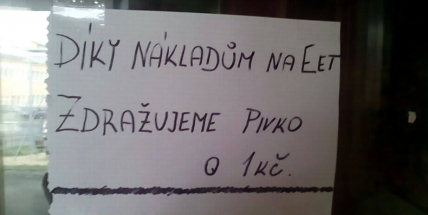 DÍKY NÁKLADŮM NA EET
ZDRAŽUJEME PIVKO
O 1KČ.